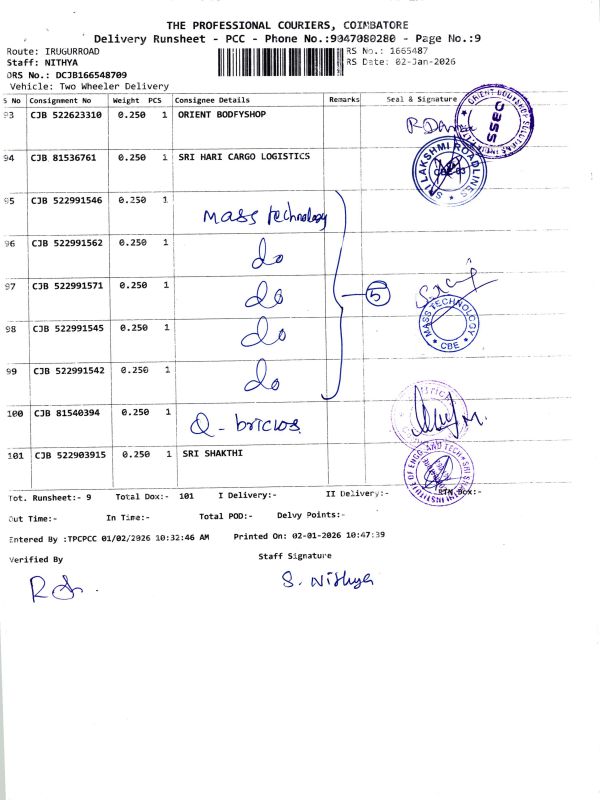 THE PROFESSIONAL COURIERS, COIMBATORE
Delivery Runsheet - PCC - Phone No.:9047080280 - Page No.:9
Route: IRUGURROAD
RS No.: 1665487
Staff: NITHYA
RS Date: 02-Jan-2026
DRS No.: DCJB166548709
Vehicle: Two Wheeler Delivery
S No Consignment No Weight PCS Consignee Details Remarks Seal & Signature
93 CJB 522623310 0.250 1 ORIENT BODFYSHOP
94 CJB 81536761 0.250 1 SRI HARI CARGO LOGISTICS
SRI LAKSHMI ROADLINES
95 CJB 522991546 0.250 1 Mass technology
96 CJB 522991562 0.250 1 do
97 CJB 522991571 0.250 1 do 5
98 CJB 522991545 0.250 1 do
MASS TECHNOLOGY CBE
99 CJB 522991542 0.250 1 do
100 CJB 81540394 0.250 1
101 CJB 522903915 0.250 1 SRI SHAKTHI
INSTITUTE OF ENGG. AND TECH
Tot. Runsheet:- 9 Total Dox:- 101 I Delivery:- II Delivery:- RTN Dox:-
Out Time:- In Time:- Total POD:- Delvy Points:-
Entered By :TPCPCC 01/02/2026 10:32:46 AM Printed On: 02-01-2026 10:47:39
Verified By Staff Signature
S. Nithya